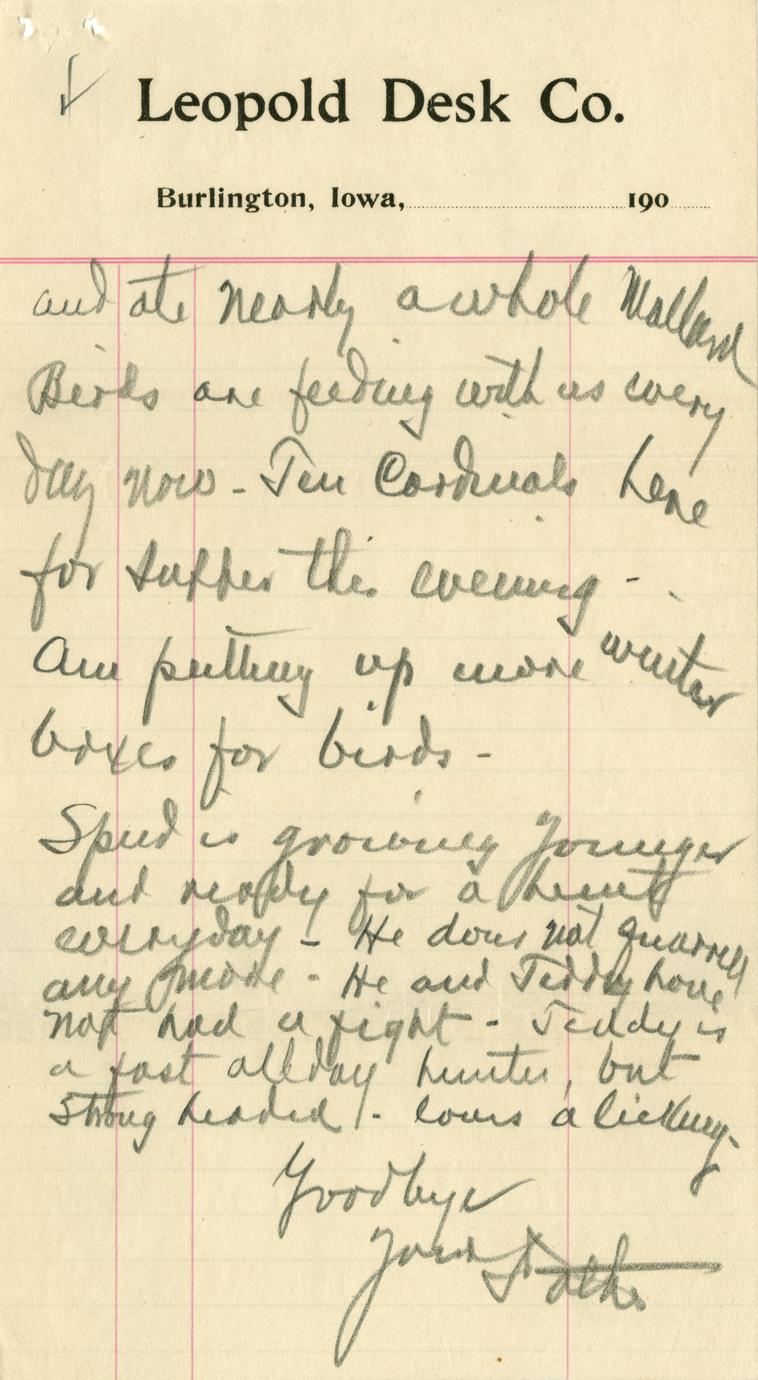 Leopold Desk Co.
Burlington, Iowa, 190
and ate nearly a whole Mallard
Birds are feeding with us every
day now - Ten Cardinals here
for supper this evening -
Am putting up more winter
boxes for birds -
Spud is growing younger
and ready for a hunt
everyday - He does not quarrell
any more - He and Teddy have
not had a fight - Teddy is
a fast allday hunter, but
strong headed - loves a licking -
Goodbye
Your Father